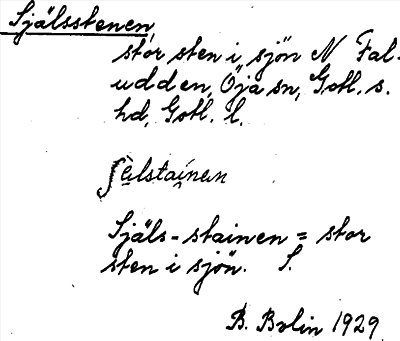 Själsstenen,
stor sten i sjön N Fal-
udden, Öja sn, Gotl. s.
hd, Gotl. l.
ʃälstainan
Själs-stainen = stor
sten i sjön. S.
B. Bolin 1929